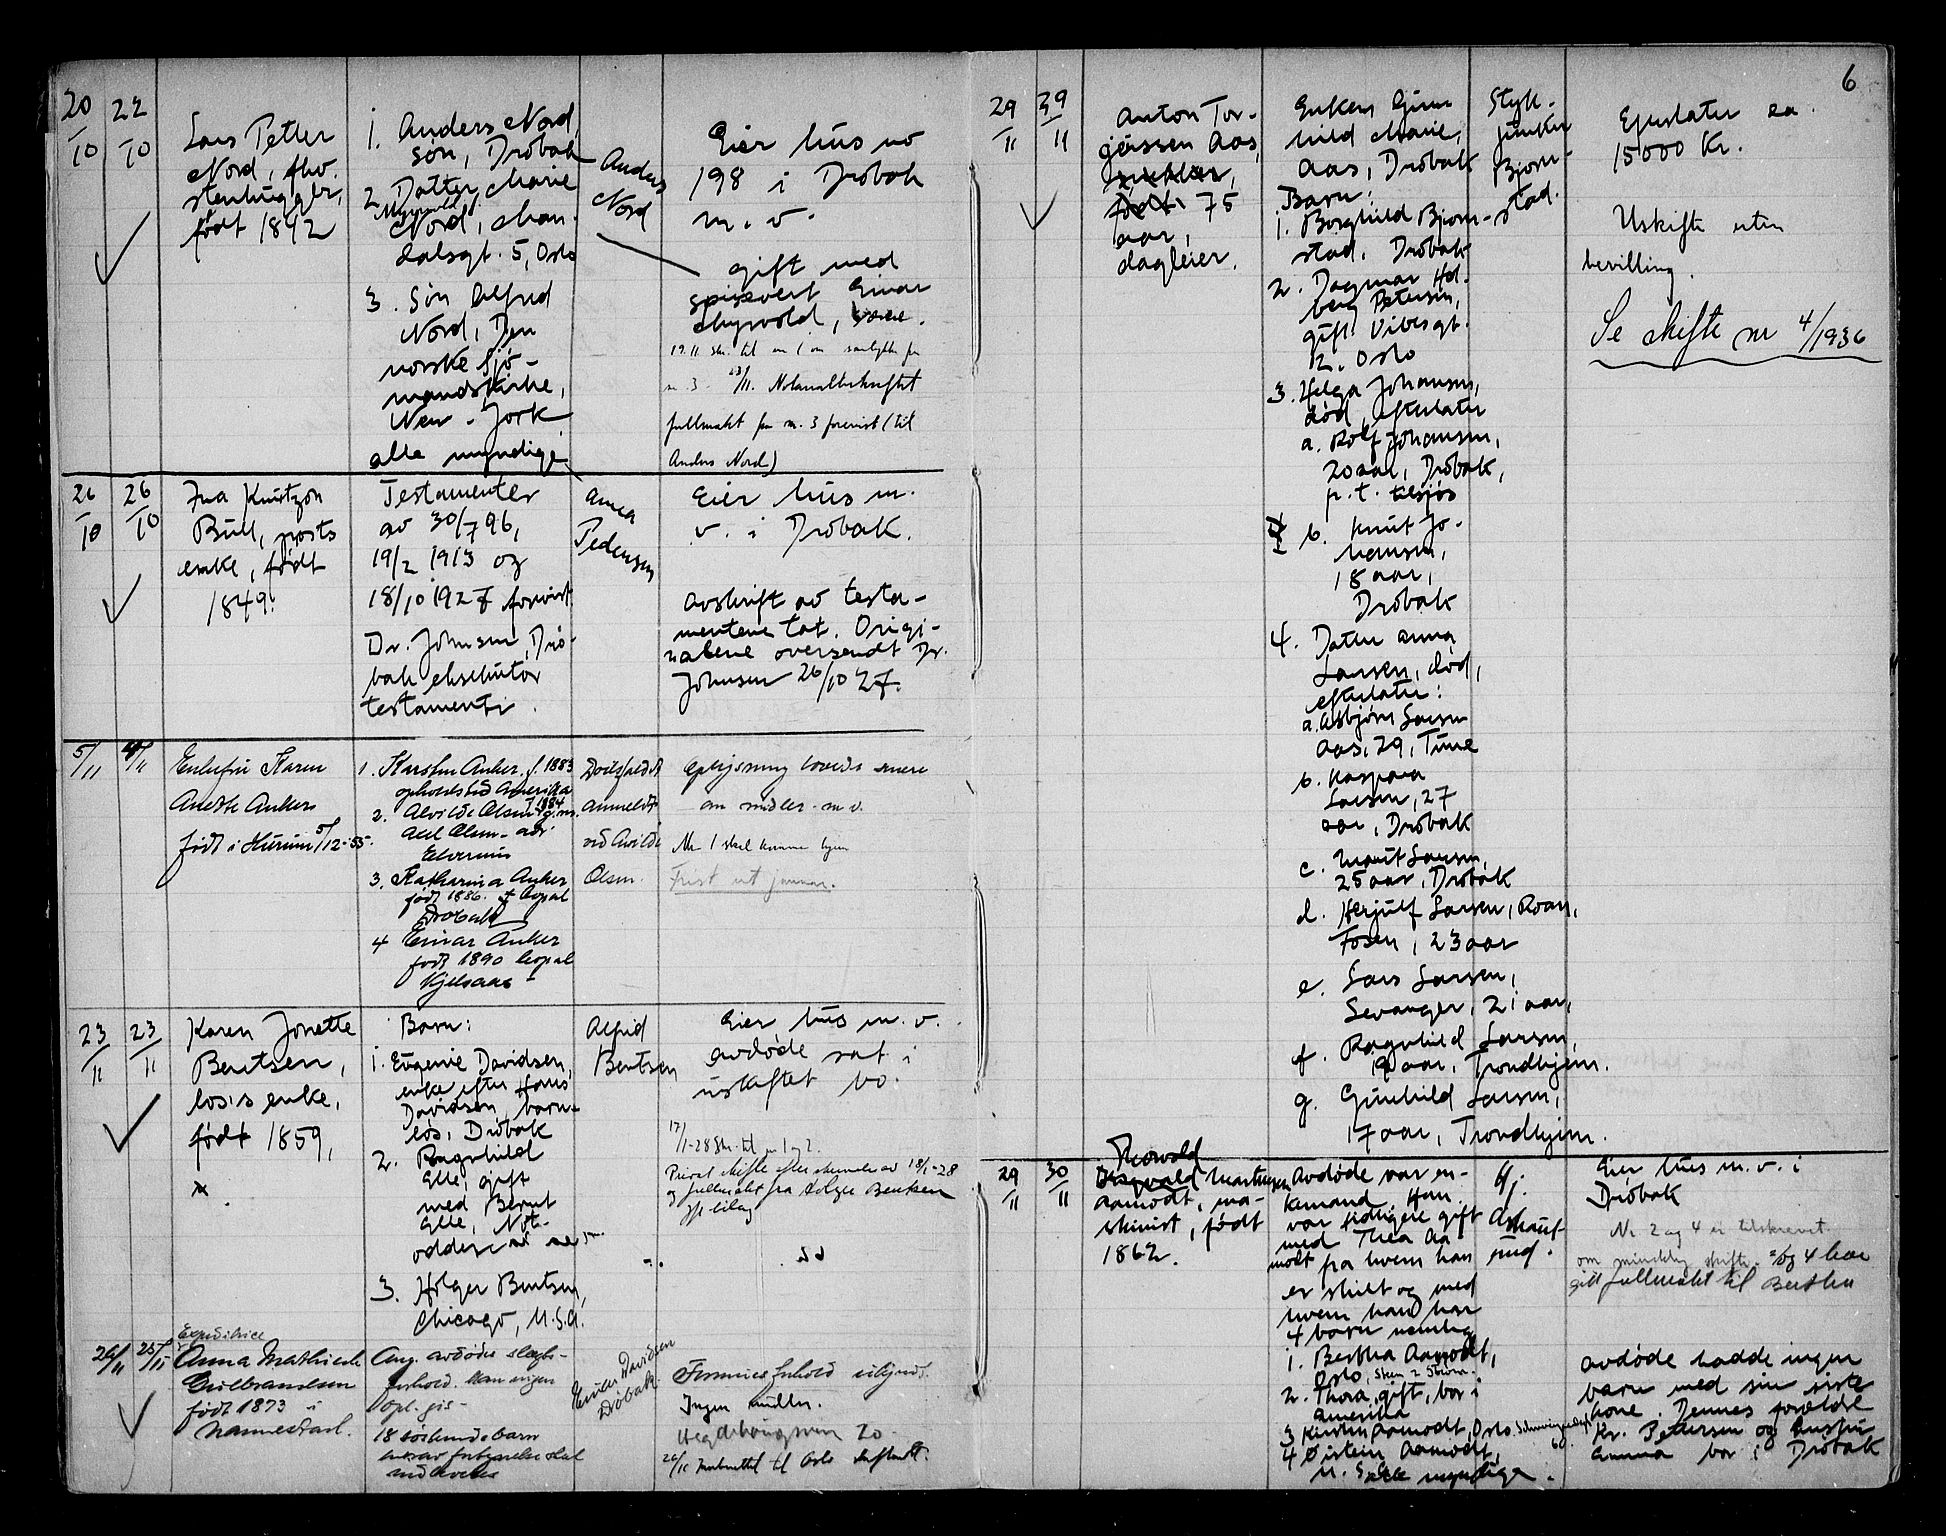 20/10
22/10
Lars Petter
Nord, fhv.
stenhugger,
født 1842
1. Anders Nord,
søn, Drøbak
2. Datter, Marie
Myrvold
Nord, Man-
dalsgt. 5, Oslo
3. Søn Alfred
Nord, Den
norske Sjø-
mandskirke,
New-Jork
alle myndige
Anders
Nord
Eier hus no
198 i Drøbak
m. v.
gift med
spisevert Einar
Myrvold,
19.11 skr. til nr 1 om samtykke fra
nr 3. 23/11. Notarialbekræftet
fullmakt fra nr. 3 forevist (til
Anders Nord)
26/10
26/10
Ina Knutzon
Bull, prests
enke, født
1849.
Testamenter
av 30/7 96,
19/2 1913 og
18/10 1927 forevist
Dr. Johnsen, Drø-
bak eksekutor
testamenti.
Anna
Pedersen
Eier hus m.
v. i Drøbak.
Avskrift av testa-
mentene tat. Origi-
nalene oversendt Dr.
Johnsen 26/10 27.
5/11
4/11
Enkefru Karen
Anette Ankers
født i Hurum 5/12-55.
1. Karsten Anker. f. 1883
opholdssted Amerika
2. Alvilde Olsen f. 1884 g.m.
Axel Olsen - adr
Elverum
3. Katharina Anker
født 1886. + bopæl
Drøbak
4 Einar Anker
født 1890 bopæl
Kjelsaas -
Dødsfaldet
anmeldt
ved Alvilde
Olsen.
Oplysning loves senere
om midler m v.
Nr 1 skal komme hjem
Frist ut januar.
23/11
23/11
Karen Jonette
Bentsen,
los's enke,
født 1859,
Barn:
1. Eugenie Davidsen,
enke efter Hans
Davidsen, barn-
løs, Drøbak
2. Ragnhild
Elle, gift
med Bernt
Elle, Not-
odden
3. Holger Bentsen,
Chicago, U.S.A.
Alfrid
Bentsen
Eier hus m. v.
Avdøde sat i
uskiftet bo.
17/1-28 Skr. til nr 1 og 2.
Privat skifte efter skrivelse av 18/1-28
og fullmakt fra Holger Bentsen
jfr bilag
26/11
25/11
Expeditrice
Anna Mathilde
Gulbrandsen
født 1873 i
Nannestad.
Ang. avdødes slegts-
forhold kan ingen
opl. gis -
18 søskendebarn
Einar Davidsen
Drøbak.
Formuesforhold ukjendt.
Ingen midler.
Hegdehaugsveien 20
26/11 Innberettet til Oslo skifterett.
6
29/11
29/11
Anton Tor-
gersen Aas,
født 75
aar,
dagleier.
Enken Gun-
hild Marie,
Aas, Drøbak
Barn:
1. Borghild Bjørn-
stad, Drøbak
2. Dagmar Hol-
berg Petersen,
gift. Vibesgt.
12. Oslo
3. Helga Johansen,
død, efterlater
a. Rolf Johansen,
20 aar, Drøbak,
p.t. tilsjøs
b. Knut Jo-
hansen,
18 aar,
Drøbak
4. Datter Anna
Larsen, død,
efterlater:
a. Asbjørn Larsen
Aas, 29, Tune
b. Kaspara
Larsen, 27
aar, Drøbak
c. Marit Larsen,
25 aar, Drøbak
d. Herjulf Larsen, Roan,
Fosen, 23 aar
e. Lars Larsen,
Levanger, 21 aar,
f. Ragnhild Larsen,
19 aar, Trondhjem.
g. Gunhild Larsen,
17 aar, Trondhjem.
Styk-
junker
Bjørn-
stad.
Efterlater ca.
15000 Kr.
Uskifte uten
bevilling.
Se skifte nr 4/1936
29/11
30/11
Thorvald
Martinsen
Aamodt, ma-
skinist, født
1862.
Avdøde var en-
kemand. Han
var tidligere gift
med Thea Aa-
modt fra hvem han
er skilt og med
hvem han har
4 barn nemlig
1. Bertha Aamodt,
Oslo,
2. Thora, gift, bor i
Amerika
3 Kirsten Aamodt, Oslo. Schweigaardsgt 60
4 Øistein Aamodt,
U.S. alle myndige.
Hj.
Eier hus m.v. i
Drøbak
Nr 2 og 4 er tilskrevet
om mindelig skifte. 2 og 4 har
gitt fullmakt til Bertha
Avdøde hadde ingen
barn med sin siste
kone. Dennes forældre
Kr. Pedersen og hustru
Emma bor i Drøbak